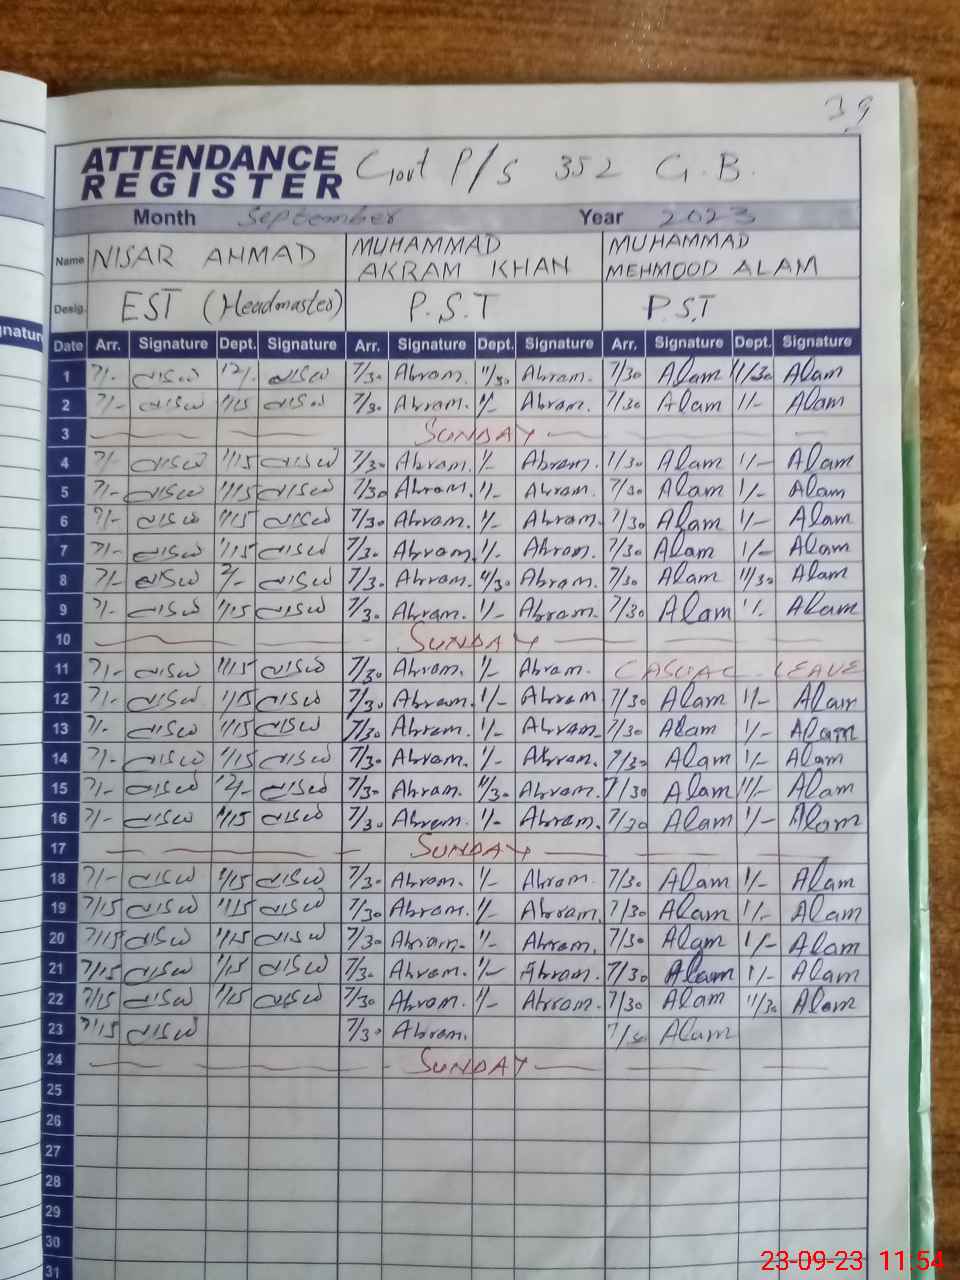 39
ATTENDANCE
REGISTER Govt P/S 352 G.B.
Month September Year 2023
Name NISAR AHMAD MUHAMMAD AKRAM KHAN MUHAMMAD MEHMOOD ALAM
Desig. EST (Headmaster) P.S.T P.S.T
gnature Date Arr. Signature Dept. Signature Arr. Signature Dept. Signature Arr. Signature Dept. Signature
1 7/- 12/- 7/30 Akram. 11/30 Akram. 7/30 Alam 11/30 Alam
2 7/- 1/15 7/30 Akram. 1/- Akram. 7/30 Alam 1/- Alam
3 SUNDAY
4 7/- 1/15 7/30 Akram. 1/- Akram. 7/30 Alam 1/- Alam
5 7/- 1/15 7/30 Akram. 1/- Akram. 7/30 Alam 1/- Alam
6 7/- 1/15 7/30 Akram. 1/- Akram. 7/30 Alam 1/- Alam
7 7/- 1/15 7/30 Akram. 1/- Akram. 7/30 Alam 1/- Alam
8 7/- 7/30 Akram. 11/30 Akram. 7/30 Alam 11/30 Alam
9 7/- 1/15 7/30 Akram. 1/- Akram. 7/30 Alam 1/- Alam
10 SUNDAY
11 7/- 1/15 7/30 Akram. 1/- Akram. CASUAL LEAVE
12 7/- 1/15 7/30 Akram. 1/- Akram 7/30 Alam 1/- Alam
13 7/- 1/15 7/30 Akram. 1/- Akram 7/30 Alam 1/- Alam
14 7/- 1/15 7/30 Akram. 1/- Akram. 7/30 Alam 1/- Alam
15 7/- 12/- 7/30 Akram. 11/30 Akram. 7/30 Alam Alam
16 7/- 1/15 7/30 Akram. 1/- Akram. 7/30 Alam 1/- Alam
17 SUNDAY
18 7/- 1/15 7/30 Akram. 1/- Akram. 7/30 Alam 1/- Alam
19 7/15 1/15 7/30 Akram. 1/- Akram. 7/30 Alam 1/- Alam
20 7/15 1/15 7/30 Akram. 1/- Akram. 7/30 Alam 1/- Alam
21 7/15 1/15 7/30 Akram. 1/- Akram. 7/30 Alam 1/- Alam
22 7/15 1/15 7/30 Akram. 1/- Akram. 7/30 Alam 11/30 Alam
23 7/15 7/30 Akram. 7/30 Alam
24 SUNDAY
25
26
27
28
29
30
31
23-09-23 11:54